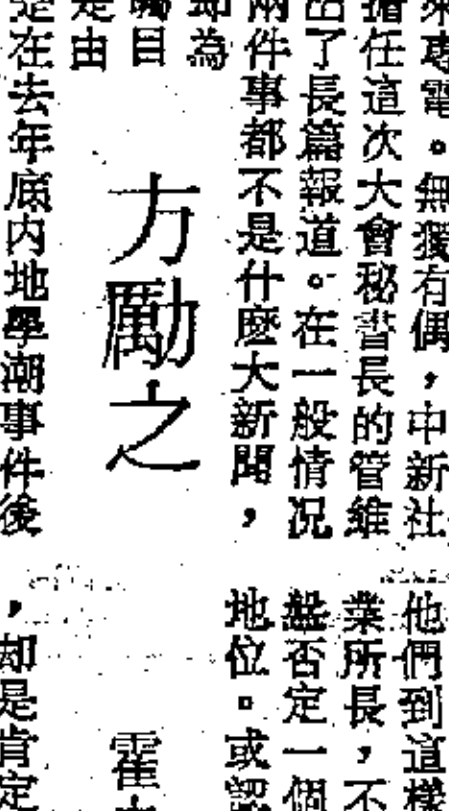 來專電。無獨有偶，中新社
擔任這次大會秘書長的管維
出了長篇報道。在一般情况
兩件事都不是什麽大新聞，
却為
矚目
是由
是在去年底内地學潮事件後
方勵之
他們到這樣
業所長，不
盤否定一個
地位。或認
霍
，却是肯定